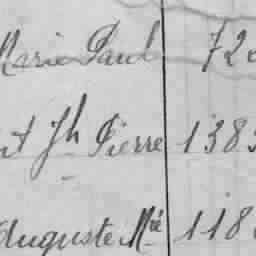 Marie Paul 72
Jh Pierre 138
Auguste Mié 118